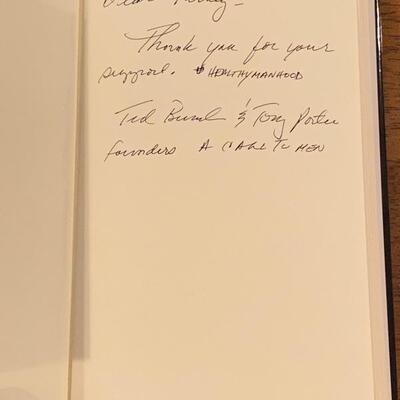 Thank you for your
support. #HEALTHYMANHOOD
Ted Bunch & Tony Porter
founders A CALL TO MEN